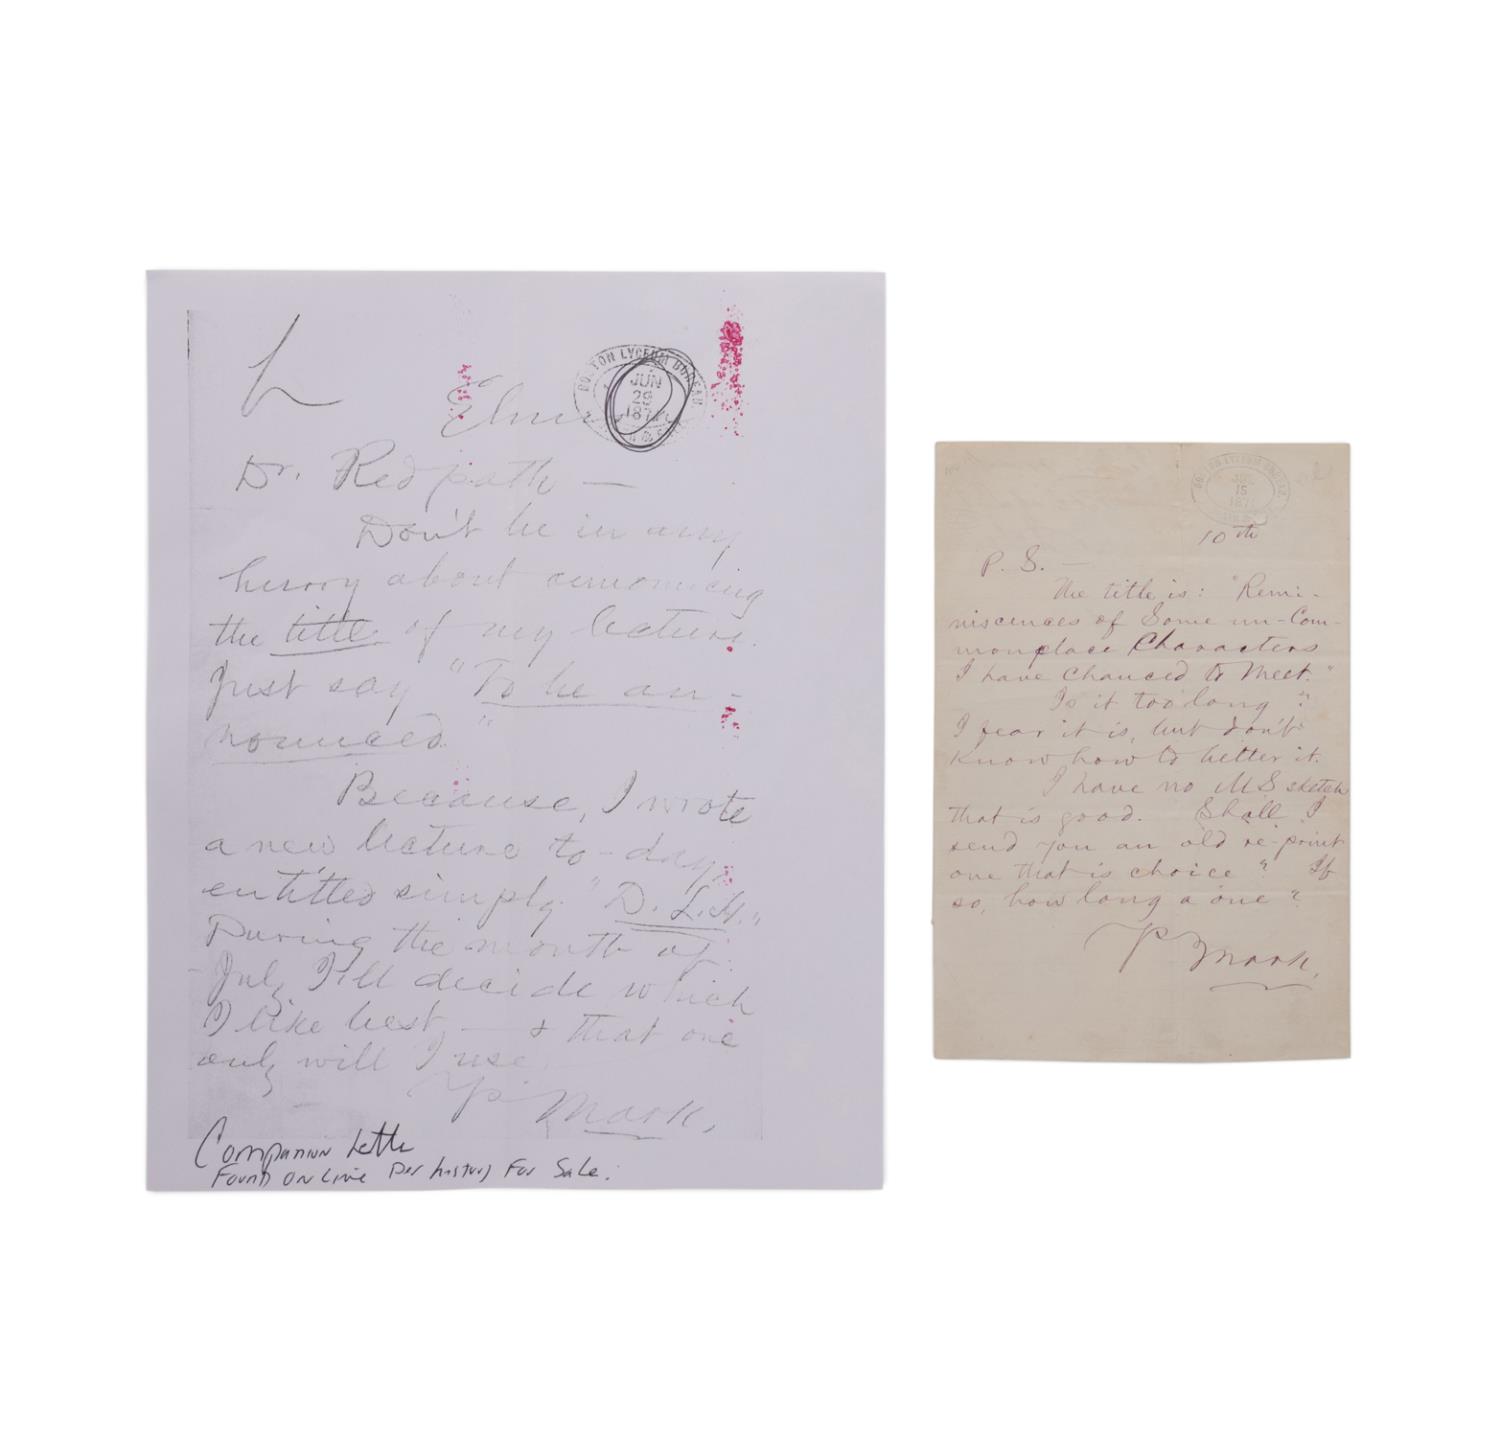 BOSTON LYCEUM BUREAU
JUN
29
187
Dr. Redpath —
Don't be in any
hurry about announcing
the title of my lecture.
Just say "To be an-
nounced."
Because, I wrote
a new lecture to-day,
entitled simply "D. L. H."
During the month of
July I'll decide which
I like best, — & that one
only will I use.
Yrs
Mark,
Companion Lette
Found on Line Per history For Sale.
BOSTON LYCEUM BUREAU
15
187
10th
P. S. —
The title is: "Remi-
niscences of Some un-Com-
monplace Characters
I have Chanced to Meet."
Is it too long?
I fear it is, but don't
know how to better it.
I have no MS sketch
that is good. Shall I
send you an old re-print
one that is choice? If
so, how long a one?
Yrs Mark.